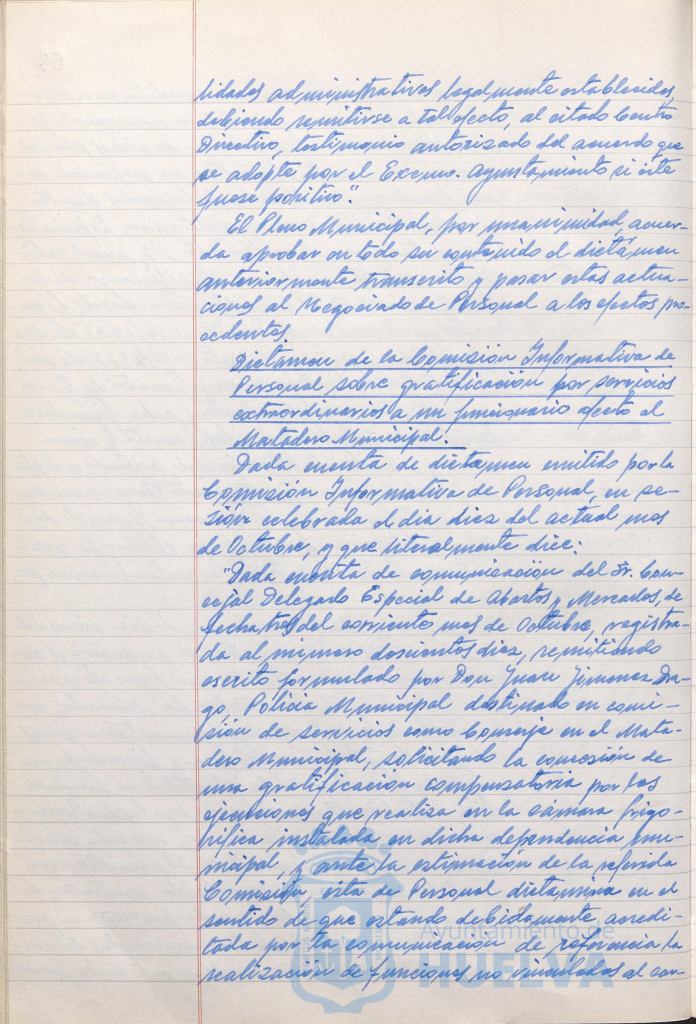 lidades administrativas legalmente establecidas,
debiendo remitirse a tal efecto, al citado Centro
Directivo, testimonio autorizado del acuerdo que
se adopte por el Excmo. Ayuntamiento si este
fuese positivo".
El Pleno Municipal, por unanimidad, acuer-
da aprobar en todo su contenido el dictámen
anteriormente transcrito y pasar estas actua-
ciones al Negociado de Personal a los efectos pro-
cedentes.
Dictamen de la Comisión Informativa de
Personal sobre gratificación por servicios
extraordinarios a un funcionario afecto al
Matadero Municipal.
Dada cuenta de dictamen emitido por la
Comisión Informativa de Personal, en se-
sión celebrada el dia diez del actual mes
de Octubre, y que literalmente dice:
"Dada cuenta de comunicación del Sr. Con-
cejal Delegado Especial de Abastos y Mercados, de
fecha tres del corriente mes de Octubre, registra-
da al número doscientos diez, remitiendo
escrito formulado por Don Juan Jimenez Dra-
go, Policia Municipal destinado en comi-
sión de servicios como Conserje en el Mata-
dero Municipal, solicitando la concesión de
una gratificación compensatoria por las
funciones que realiza en la cámara frigo-
rífica instalada en dicha dependencia mu-
nicipal, y ante la estimación de la referida
Comisión esta de Personal dictamina en el
sentido de que estando debidamente acredi-
tada por la comunicación de referencia la
realización de funciones no vinculadas al car-
Ayuntamiento de
HUELVA